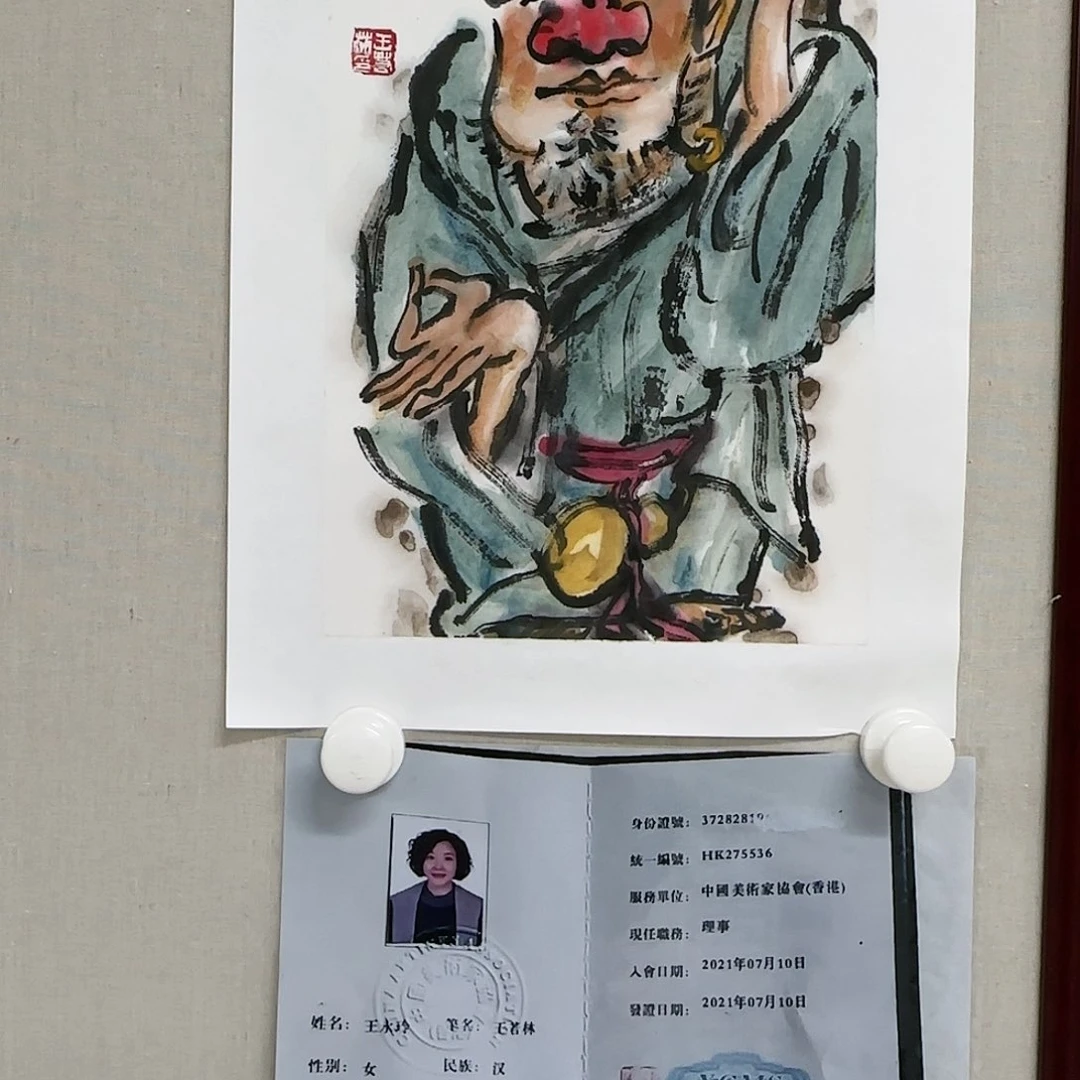 身份證號: 37282819
統一編號: HK275536
服務單位: 中國美術家協會(香港)
現任職務: 理事
入會日期: 2021年07月10日
發證日期: 2021年07月10日
姓名: 王水玲 筆名: 王若林
性别: 女 民族: 汉